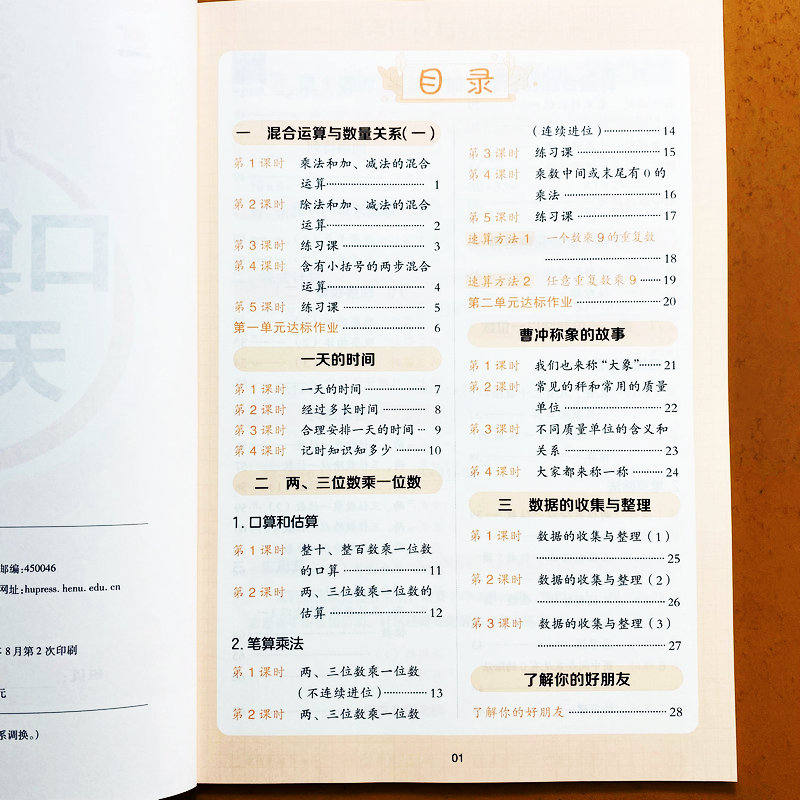 口算
天
邮编:450046
网址:hupress.henu.edu.cn
8月第2次印刷
元
系调换。)
目录
一 混合运算与数量关系(一)
第1课时 乘法和加、减法的混合
运算………………………… 1
第2课时 除法和加、减法的混合
运算………………………… 2
第3课时 练习课………………… 3
第4课时 含有小括号的两步混合
运算………………………… 4
第5课时 练习课………………… 5
第一单元达标作业………………… 6
一天的时间
第1课时 一天的时间…………… 7
第2课时 经过多长时间………… 8
第3课时 合理安排一天的时间… 9
第4课时 记时知识知多少……… 10
二 两、三位数乘一位数
1.口算和估算
第1课时 整十、整百数乘一位数
的口算……………………… 11
第2课时 两、三位数乘一位数的
估算………………………… 12
2.笔算乘法
第1课时 两、三位数乘一位数
(不连续进位)…………… 13
第2课时 两、三位数乘一位数
(连续进位)……………… 14
第3课时 练习课………………… 15
第4课时 乘数中间或末尾有0的
乘法………………………… 16
第5课时 练习课………………… 17
速算方法1 一个数乘9的重复数
……………………………… 18
速算方法2 任意重复数乘9…… 19
第二单元达标作业……………… 20
曹冲称象的故事
第1课时 我们也来称“大象”…… 21
第2课时 常见的秤和常用的质量
单位………………………… 22
第3课时 不同质量单位的含义和
关系………………………… 23
第4课时 大家都来称一称……… 24
三 数据的收集与整理
第1课时 数据的收集与整理(1)
……………………………… 25
第2课时 数据的收集与整理(2)
……………………………… 26
第3课时 数据的收集与整理(3)
……………………………… 27
了解你的好朋友
了解你的好朋友………………… 28
01